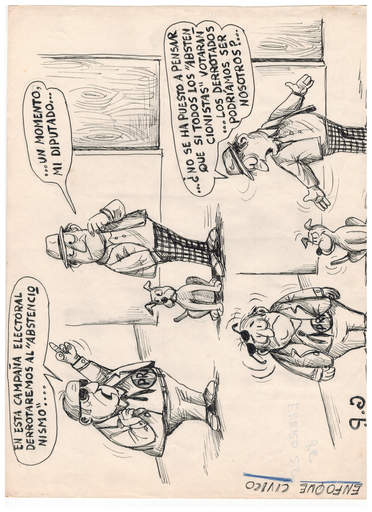 EN ESTA CAMPAÑA ELECTORAL
DERROTAREMOS AL "ABSTENCIO
NISMO"....
...UN MOMENTO,
MI DIPUTADO...
PRI
...¿NO SE HA PUESTO A PENSAR
QUE SI TODOS LOS "ABSTEN
CIONISTAS" VOTARAN
...LOS DERROTADOS
PODRÍAMOS SER
NOSOTROS?...
PRI
ENFOQUE CIVICO
ENERO